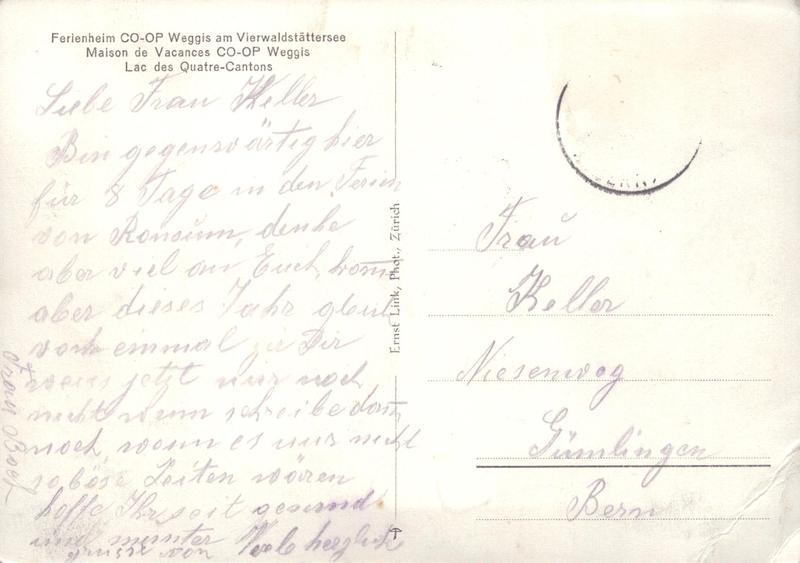 Ferienheim CO-OP Weggis am Vierwaldstättersee
Maison de Vacances CO-OP Weggis
Lac des Quatre-Cantons
Liebe Frau Keller
Bin gegenwärtig hier
für 8 Tage in den Ferien
von Konsum, denke
aber viel an Euch, komme
aber dieses Jahr
noch einmal zu Dir
weis jetzt nur noch
nicht wann schreibe dann
noch, wann es nur nicht
so böse Zeiten wären
hoffe Ihr seit gesund
und munter
grüsse von
Ernst Link, Phot., Zürich
Frau
Keller
Niesenweg
Gümlingen
Bern